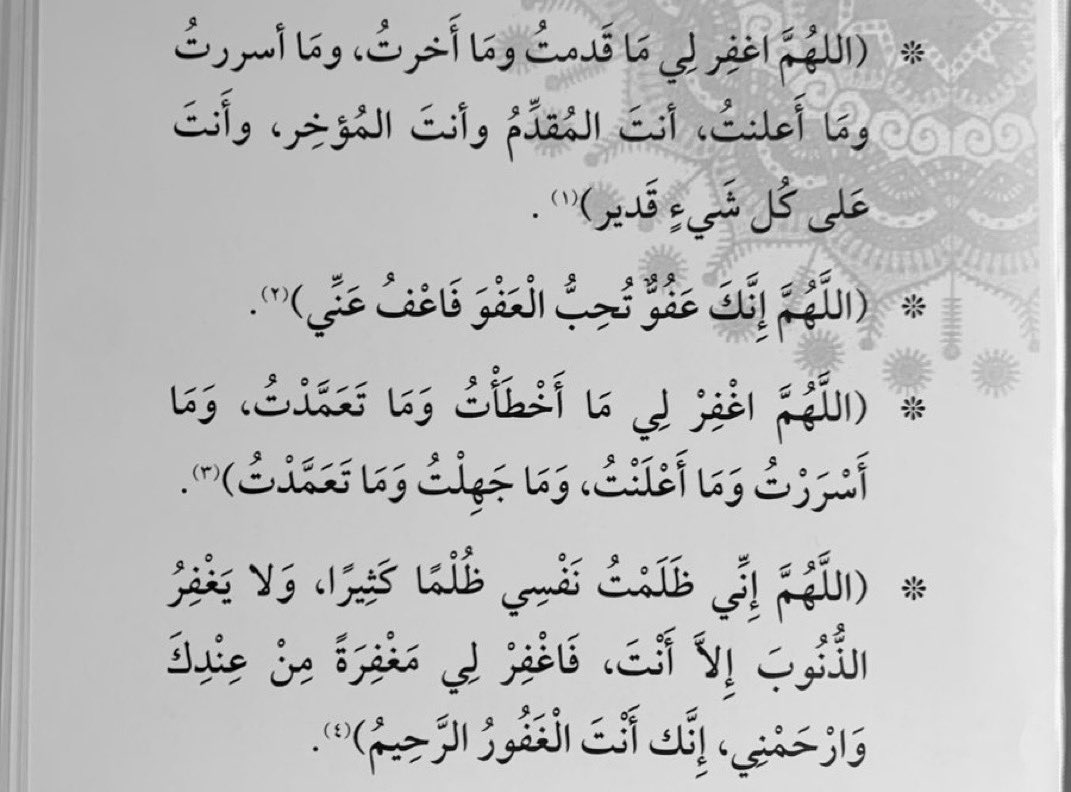 ❊ (اللهُمَّ اغفِر لِي مَا قَدمتُ ومَا أَخرتُ، ومَا أسررتُ
ومَا أَعلنتُ، أنتَ المُقدِّمُ وأنتَ المُؤخِر، وأَنتَ
عَلى كُل شَيءٍ قَدير)(١) .
❊ (اللَّهُمَّ إِنَّكَ عَفُوٌّ تُحِبُّ الْعَفْوَ فَاعْفُ عَنِّي)(٢).
❊ (اللَّهُمَّ اغْفِرْ لِي مَا أَخْطَأْتُ وَمَا تَعَمَّدْتُ، وَمَا
أَسْرَرْتُ وَمَا أَعْلَنْتُ، وَمَا جَهِلْتُ وَمَا تَعَمَّدْتُ)(٣).
❊ (اللَّهُمَّ إِنِّي ظَلَمْتُ نَفْسِي ظُلْمًا كَثِيرًا، وَلا يَغْفِرُ
الذُّنُوبَ إِلاَّ أَنْتَ، فَاغْفِرْ لِي مَغْفِرَةً مِنْ عِنْدِكَ
وَارْحَمْنِي، إِنَّك أَنْتَ الْغَفُورُ الرَّحِيمُ)(٤).